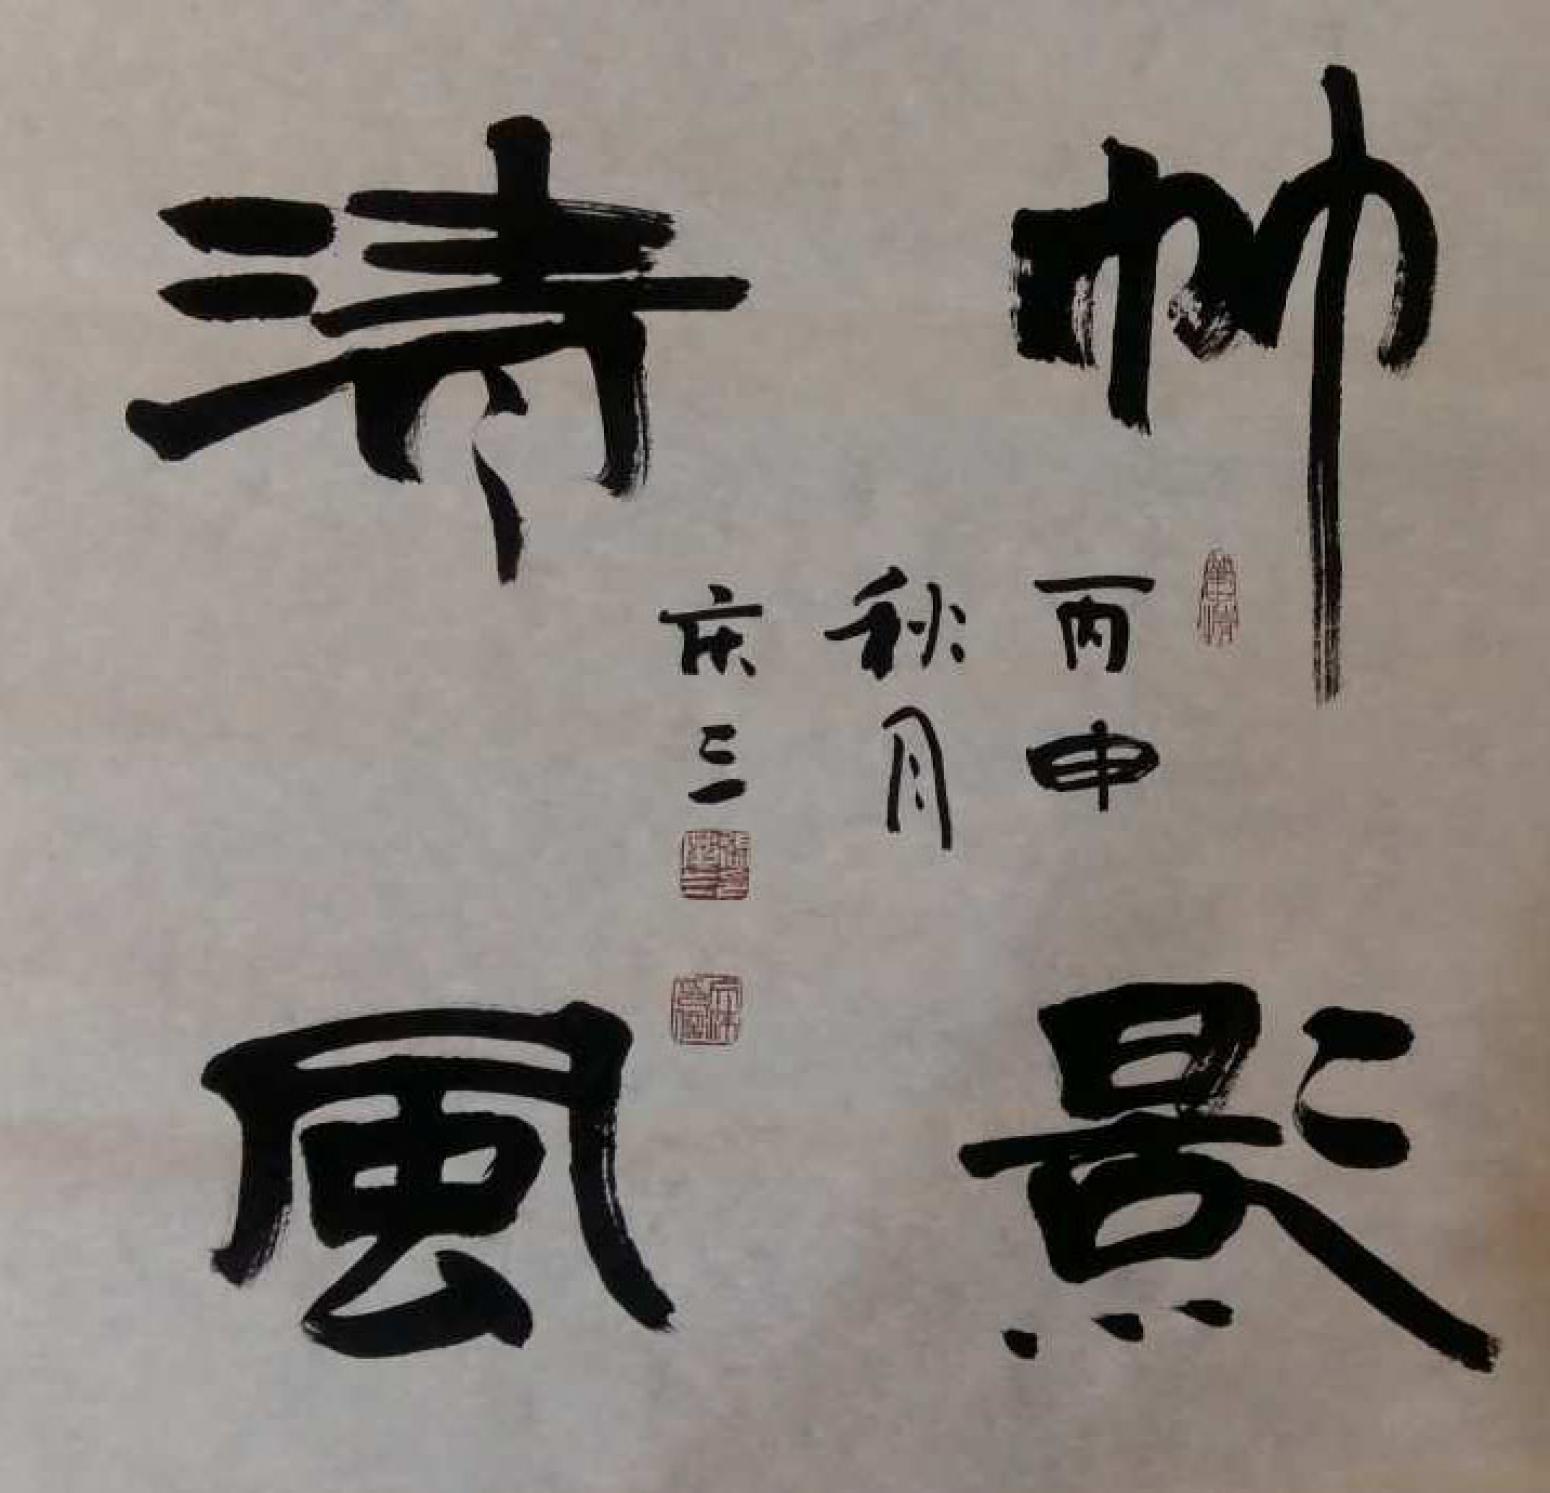 竹影
清風
丙申
秋月
庆三